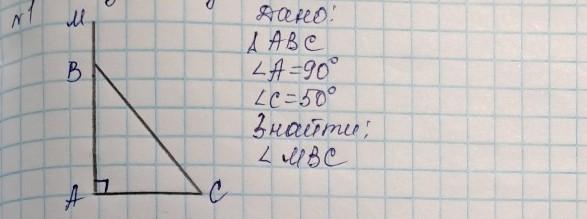 №1
M
B
A
C
Дано:
Δ ABC
∠A=90°
∠C=50°
Знайти:
∠MBC